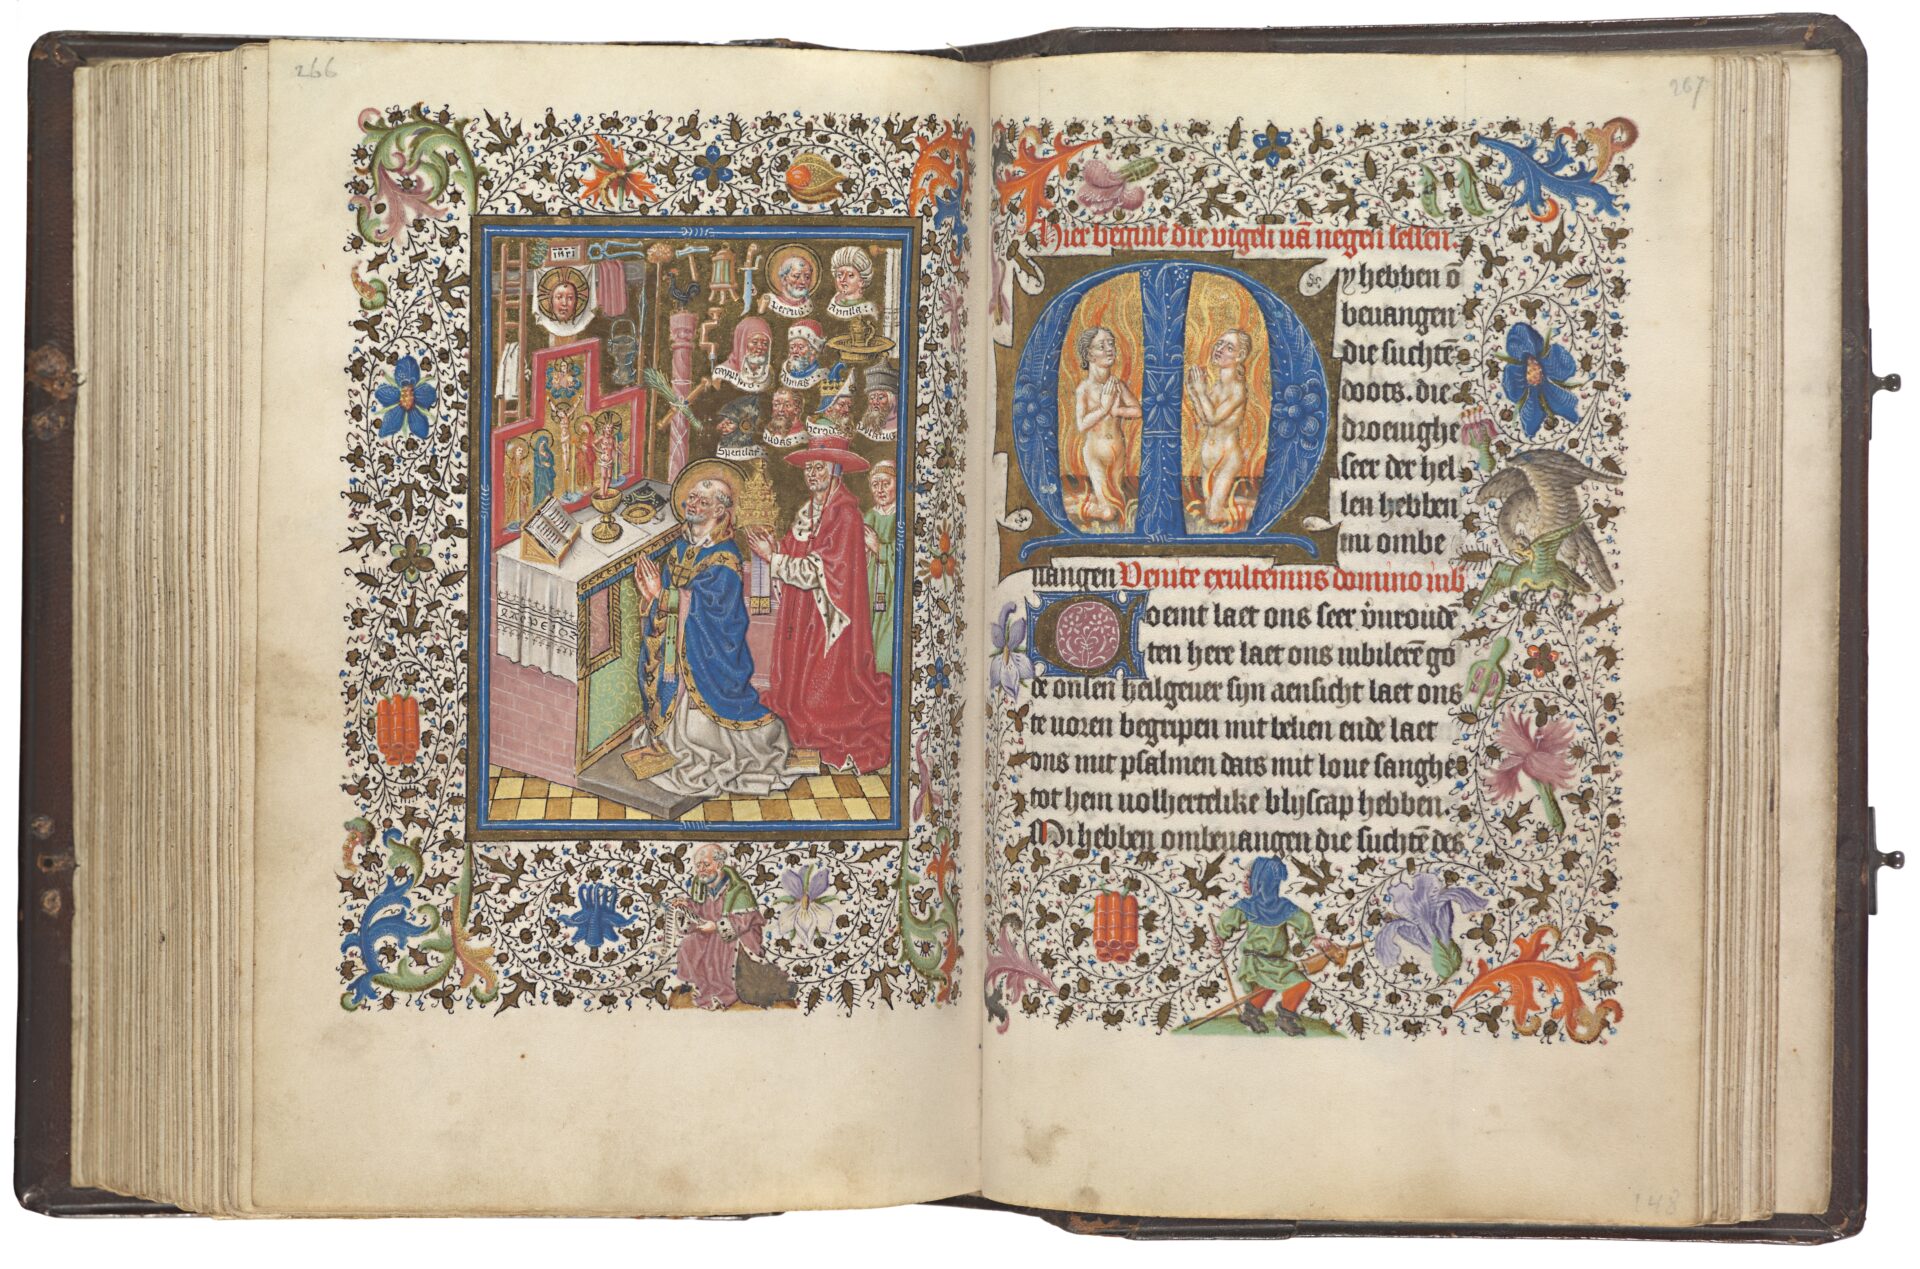 266
inri
Petrus
Ancilla
Annas
Judas
herodes
Pylatus
267
Hier beginṫ die vigeli vā negen lessen.
My hebben ō
bevangen
die suchtē
doots. die
droevighe
seer der hel
len hebben
mi ombe
vangen Venite exultemus domino iub
Coemt laet ons seer v̄vroudē
ten here laet ons iubilerē go
de onsen heilgever sijn aensicht laet ons
te voren begripen mit belien ende laet
ons mit psalmen dats mit love sanghe
tot hem volhertelike blijscap hebben.
Mi hebben ombevangen die suchtē des
148